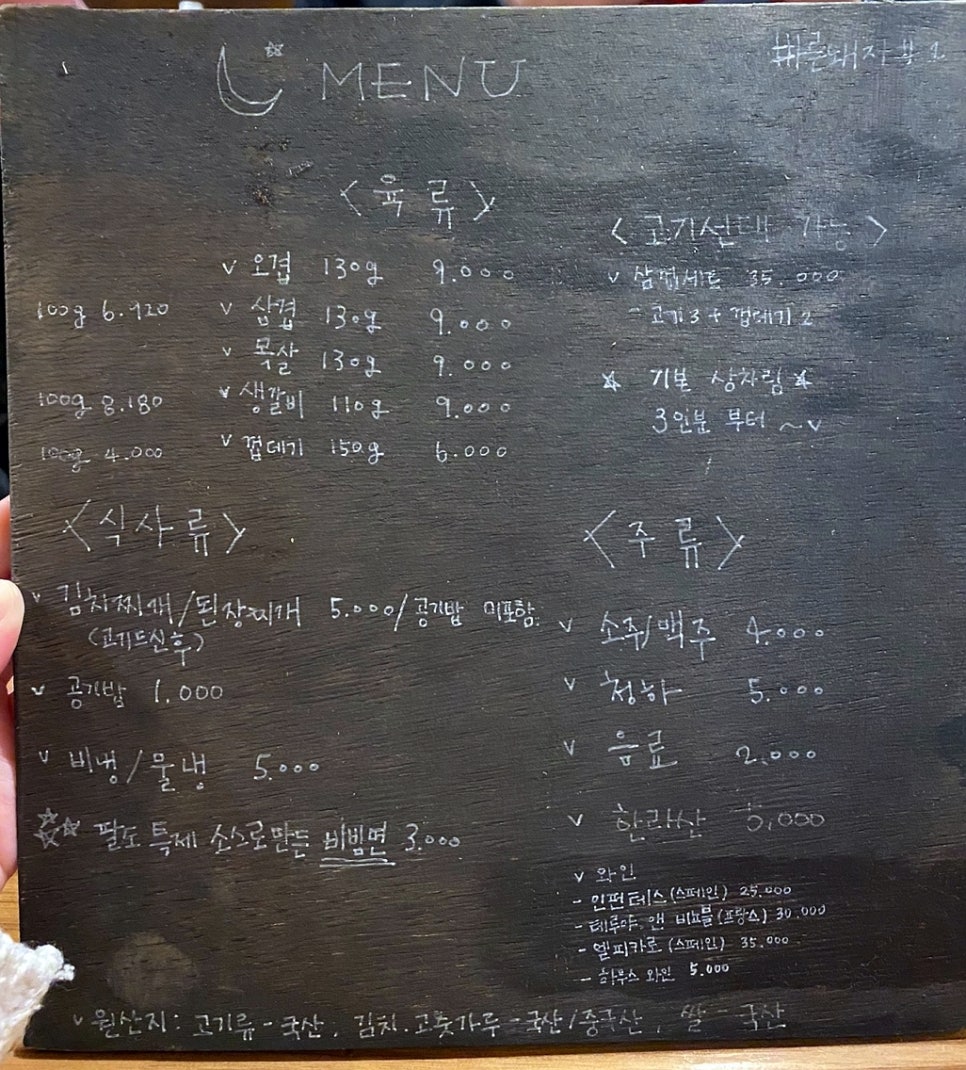 MENU
#바른돼지#1
<육류>
v 오겹 130g 9.000
100g 6.920 v 삼겹 130g 9.000
v 목살 130g 9.000
100g 8.180 v 생갈비 110g 9.000
100g 4.000 v 껍데기 150g 6.000
<고기선택 가능>
v 삼겹세트 35.000
- 고기3 + 껍데기 2
★ 기본 상차림 ★
3인분 부터 ~v
<식사류>
v 김치찌개/된장찌개 5.000/공기밥 미포함.
(고기드신후)
v 공기밥 1.000
v 비냉/물냉 5.000
팔도 특제 소스로만든 비빔면 3.000
<주류>
v 소주/맥주 4.000
v 청하 5.000
v 음료 2.000
v 한라산 5,000
v 와인
- 인펀테스(스페인) 25.000
- 테루아 앤 비플(프랑스) 30.000
- 엘피카로 (스페인) 35.000
- 하우스 와인 5.000
v 원산지: 고기류-국산, 김치.고춧가루-국산/중국산, 쌀-국산